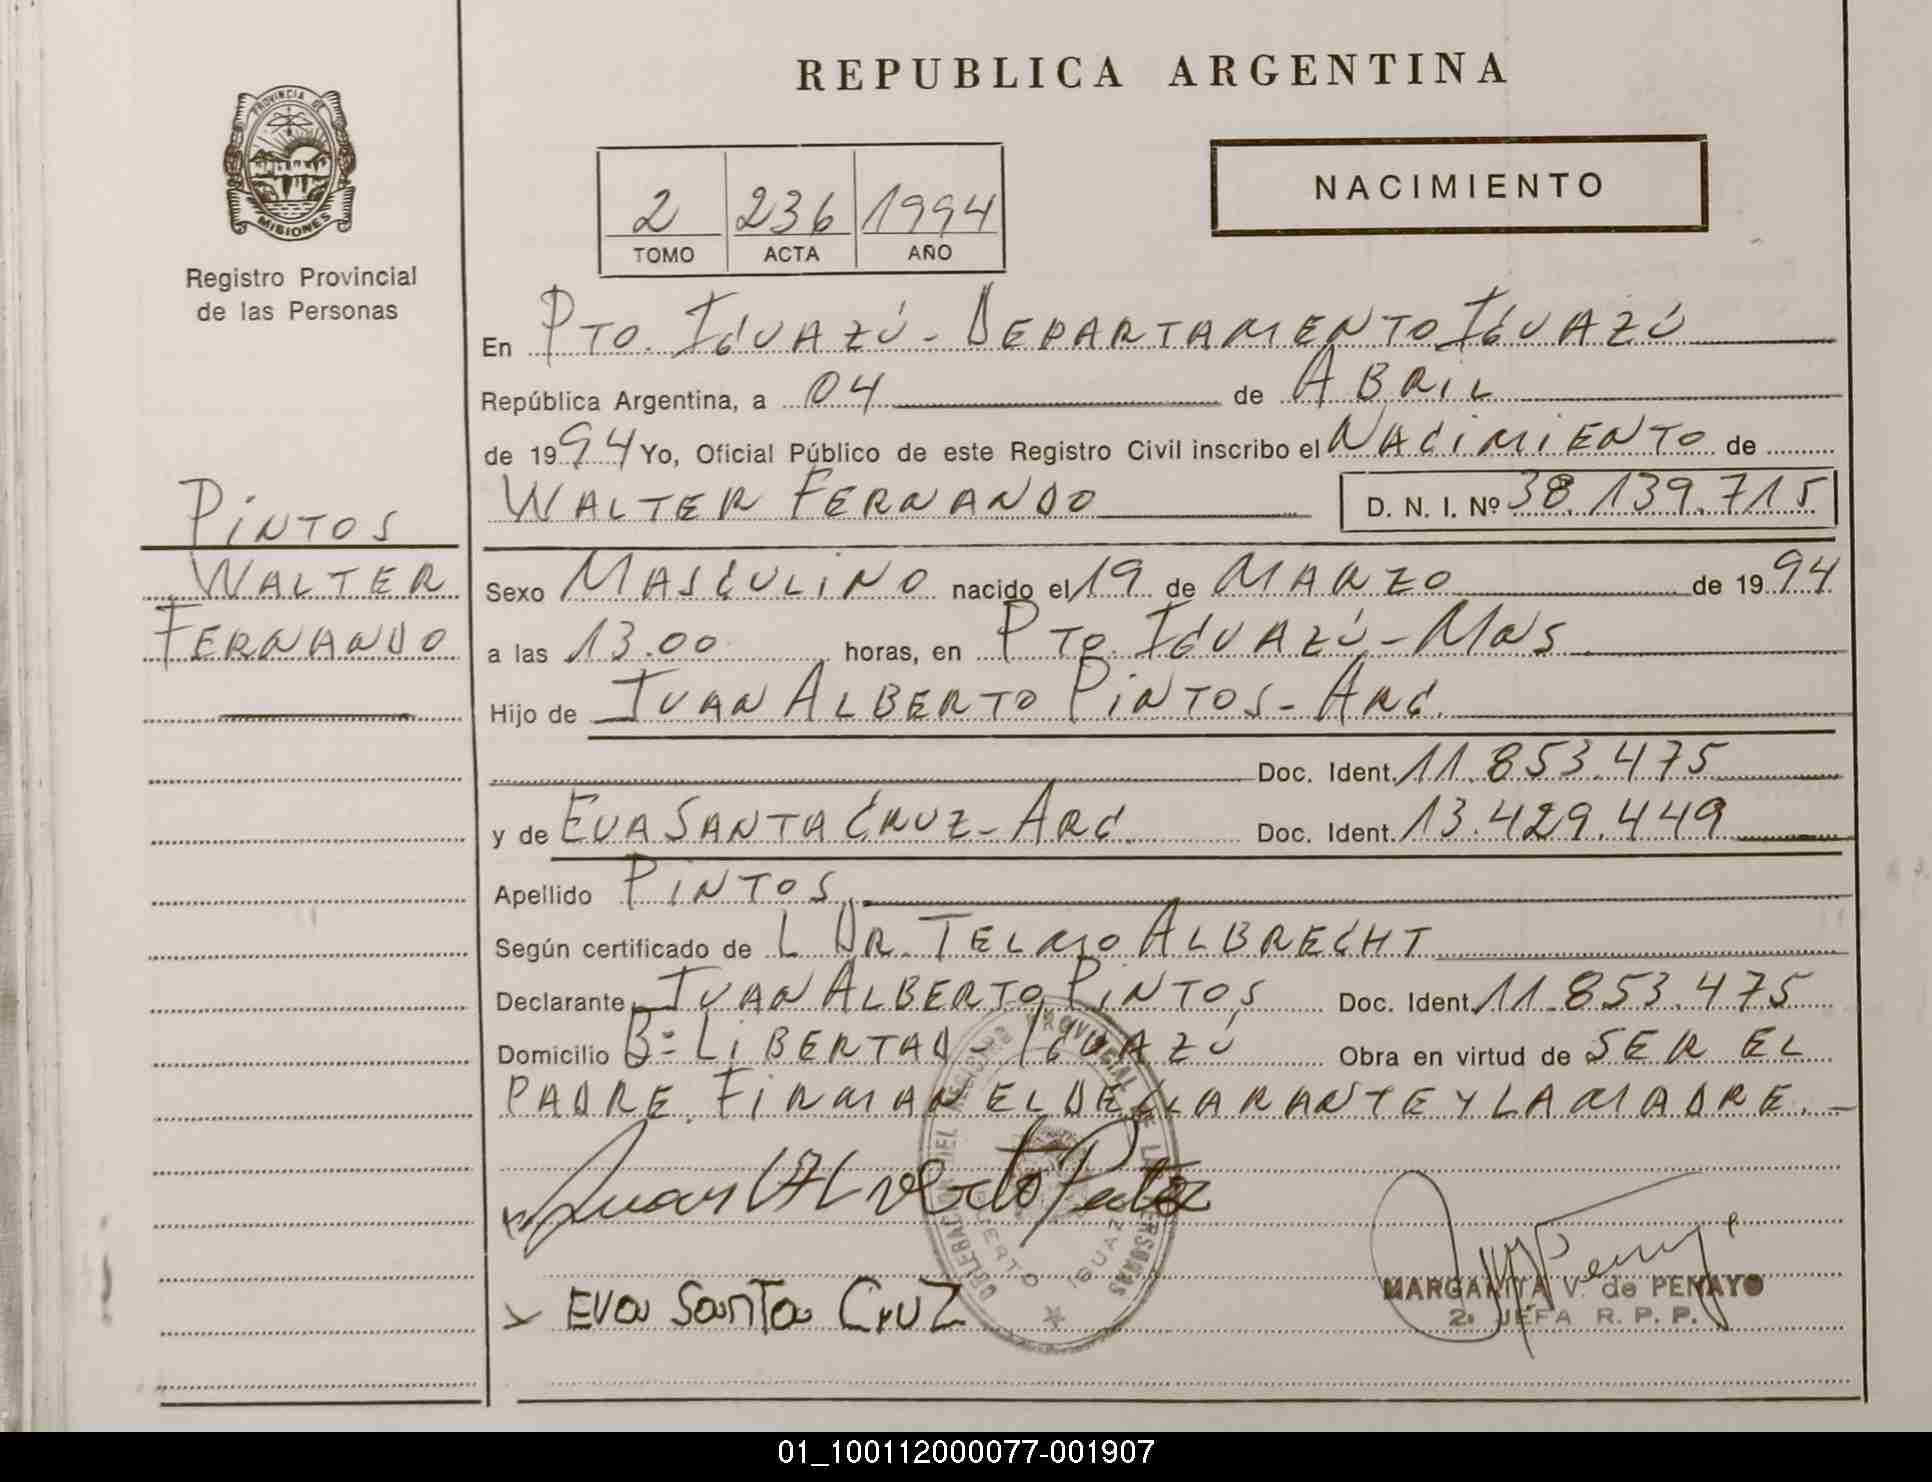 REPUBLICA ARGENTINA
PROVINCIA DE
MISIONES
Registro Provincial
de las Personas
2 236 1994
TOMO ACTA AÑO
NACIMIENTO
En PTO. IGUAZÚ - DEPARTAMENTO IGUAZÚ
República Argentina, a 04 de ABRIL
de 1994 Yo, Oficial Público de este Registro Civil inscribo el NACIMIENTO de
WALTER FERNANDO D. N. I. Nº 38.139.715
PINTOS
WALTER
FERNANDO
Sexo MASCULINO nacido el 19 de MARZO de 1994
a las 13.00 horas, en PTO. IGUAZÚ - MNS
Hijo de JUAN ALBERTO PINTOS - ARG.
Doc. Ident. 11.853.475
y de EVA SANTA CRUZ - ARG. Doc. Ident. 13.429.449
Apellido PINTOS
Según certificado de L DR. TELMO ALBRECHT
Declarante JUAN ALBERTO PINTOS Doc. Ident. 11.853.475
Domicilio Bº LIBERTAD - IGUAZÚ Obra en virtud de SER EL
PADRE. FIRMAN EL DECLARANTE Y LA MADRE. -
DEL REGISTRO PROVINCIAL DE LAS PERSONAS
PUERTO IGUAZU
Eva Santa Cruz
MARGARITA V. de PENAYO
2ª JEFA R. P. P.
01_100112000077-001907